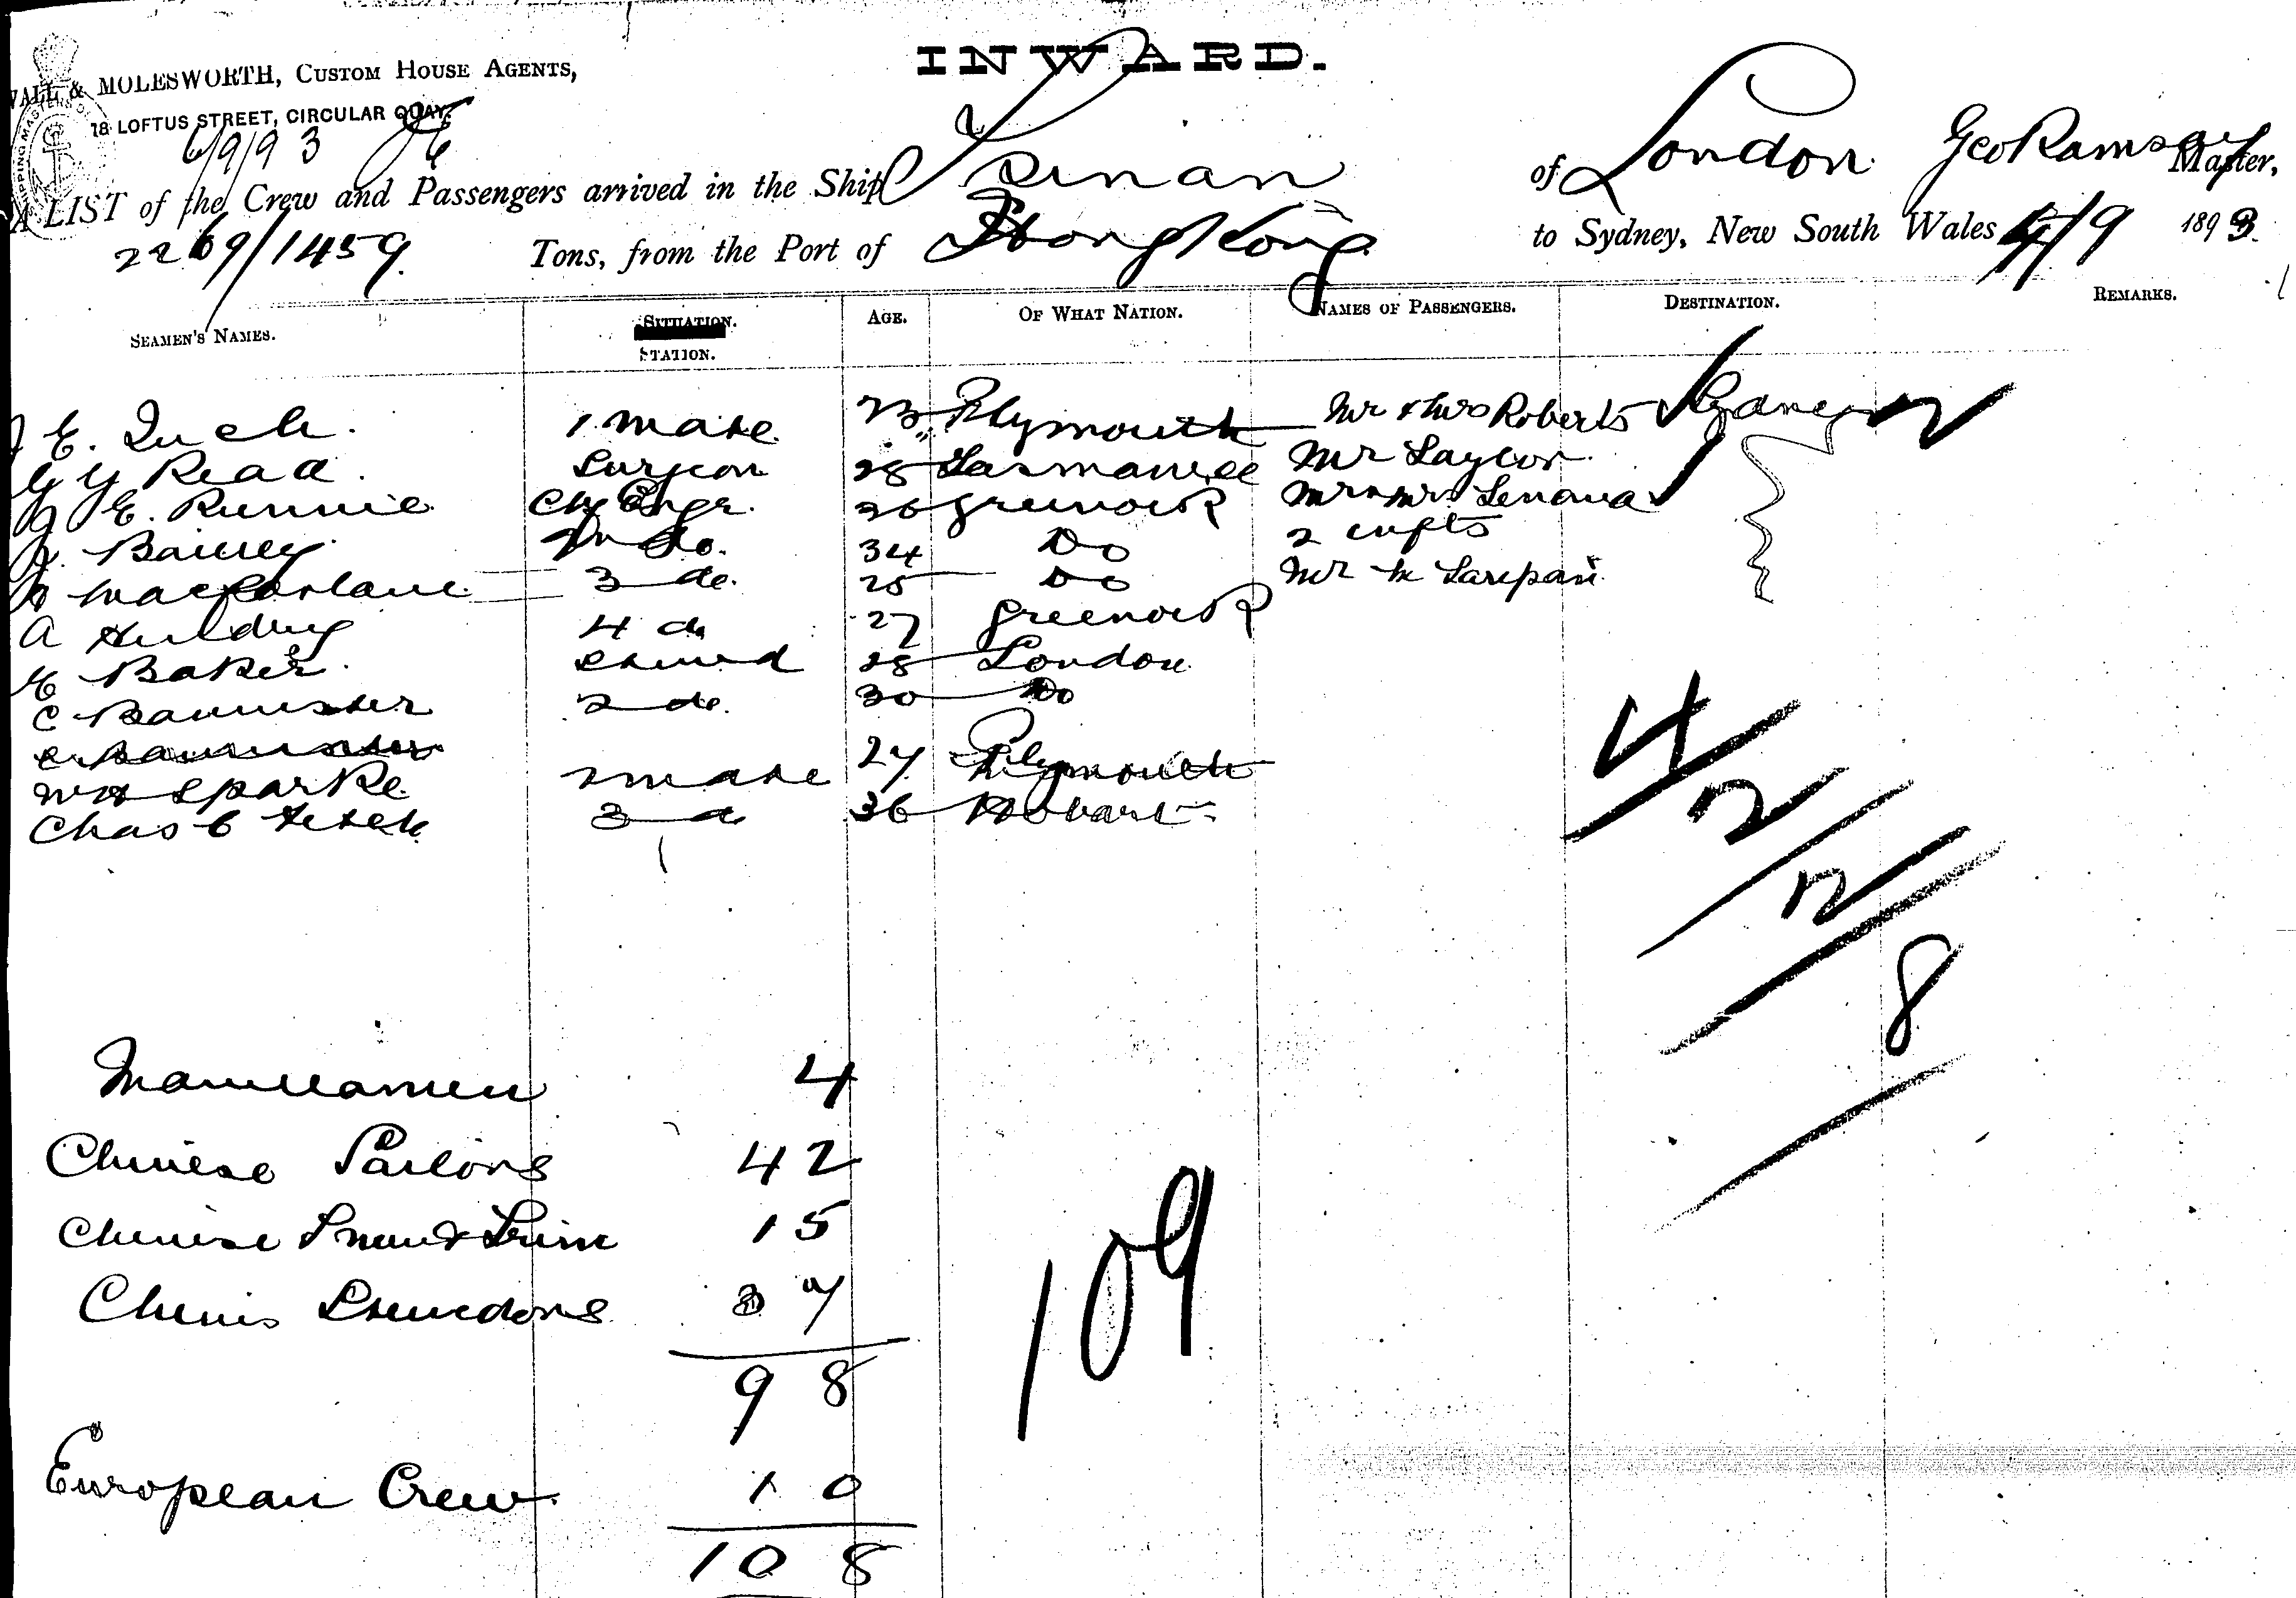 INWARD.
WALL & MOLESWORTH, CUSTOM HOUSE AGENTS,
18 LOFTUS STREET, CIRCULAR QUAY.
6/9/93
A LIST of the Crew and Passengers arrived in the Ship Tsinan of London Geo Ramsay Master,
2269/1459 Tons, from the Port of Hong Kong to Sydney, New South Wales 4/9 1893.
SEAMEN'S NAMES. SITUATION. STATION. AGE. OF WHAT NATION. NAMES OF PASSENGERS. DESTINATION. REMARKS.
E. 1 mate 33 Plymouth Mr & Mrs Roberts Sydney
Read Surgeon 28 Tasmania Mr Taylor
E. Rennie Ch Engr. 36 Greenock Mr & Mrs
J. 2n do. 34 Do 2 infts
Macfarlane 3 do. 25 Do Mr
A 4 do 27 Greenock
E Baker Steward 28 London
C Bannister 2 do. 30 Do
C Bannister
W H Sparke 2 mate 27 Plymouth
Chas 3 d 36 Hobart
4
2
2
8
Manilamen 4
Chinese Sailors 42
Chinese Firemen & Trim 15
Chines Stewedores 37
98
109
European Crew 10
108